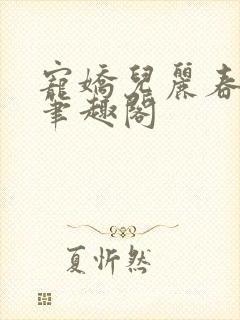 寵嬌兒麗春
筆趣閣
夏忻然